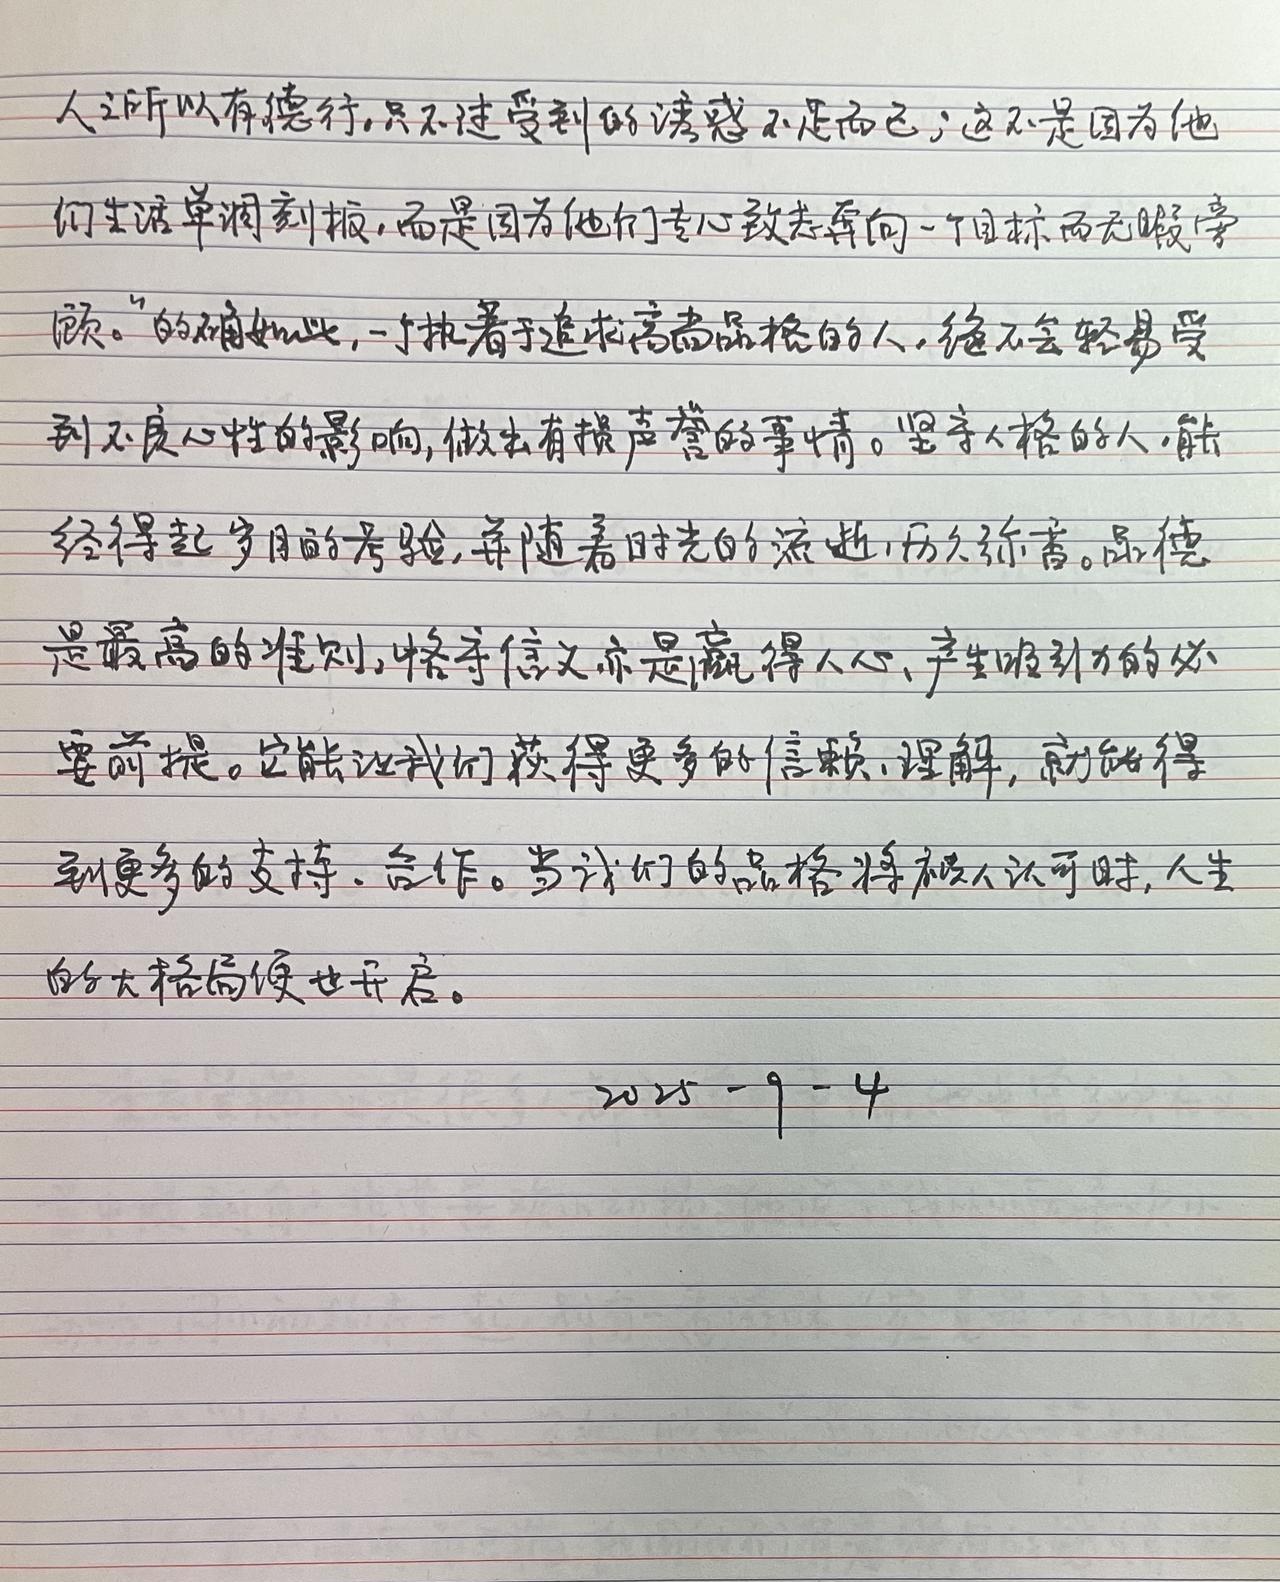 人之所以有德行,只不过受到的诱惑不足而已;这不是因为他
们生活单调刻板,而是因为他们专心致志奔向一个目标而无暇旁
顾。"的确如此,一个执着于追求高尚品格的人,绝不会轻易受
到不良心性的影响,做出有损声誉的事情。坚守人格的人,能
经得起岁月的考验,并随着时光的流逝,历久弥香。品德
是最高的准则,恪守信义亦是赢得人心、产生吸引力的必
要前提。它能让我们获得更多的信赖、理解,就能得
到更多的支持、合作。当我们的品格将被人认可时,人生
的大格局便也开启。
2025-9-4